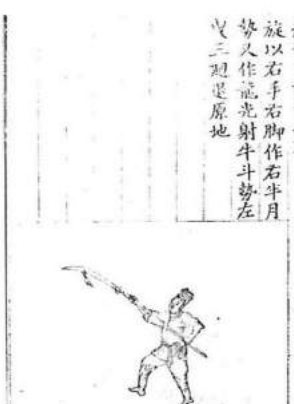 旋以右手右脚作右半月
勢又作龍光射牛斗勢左
三廻退原地